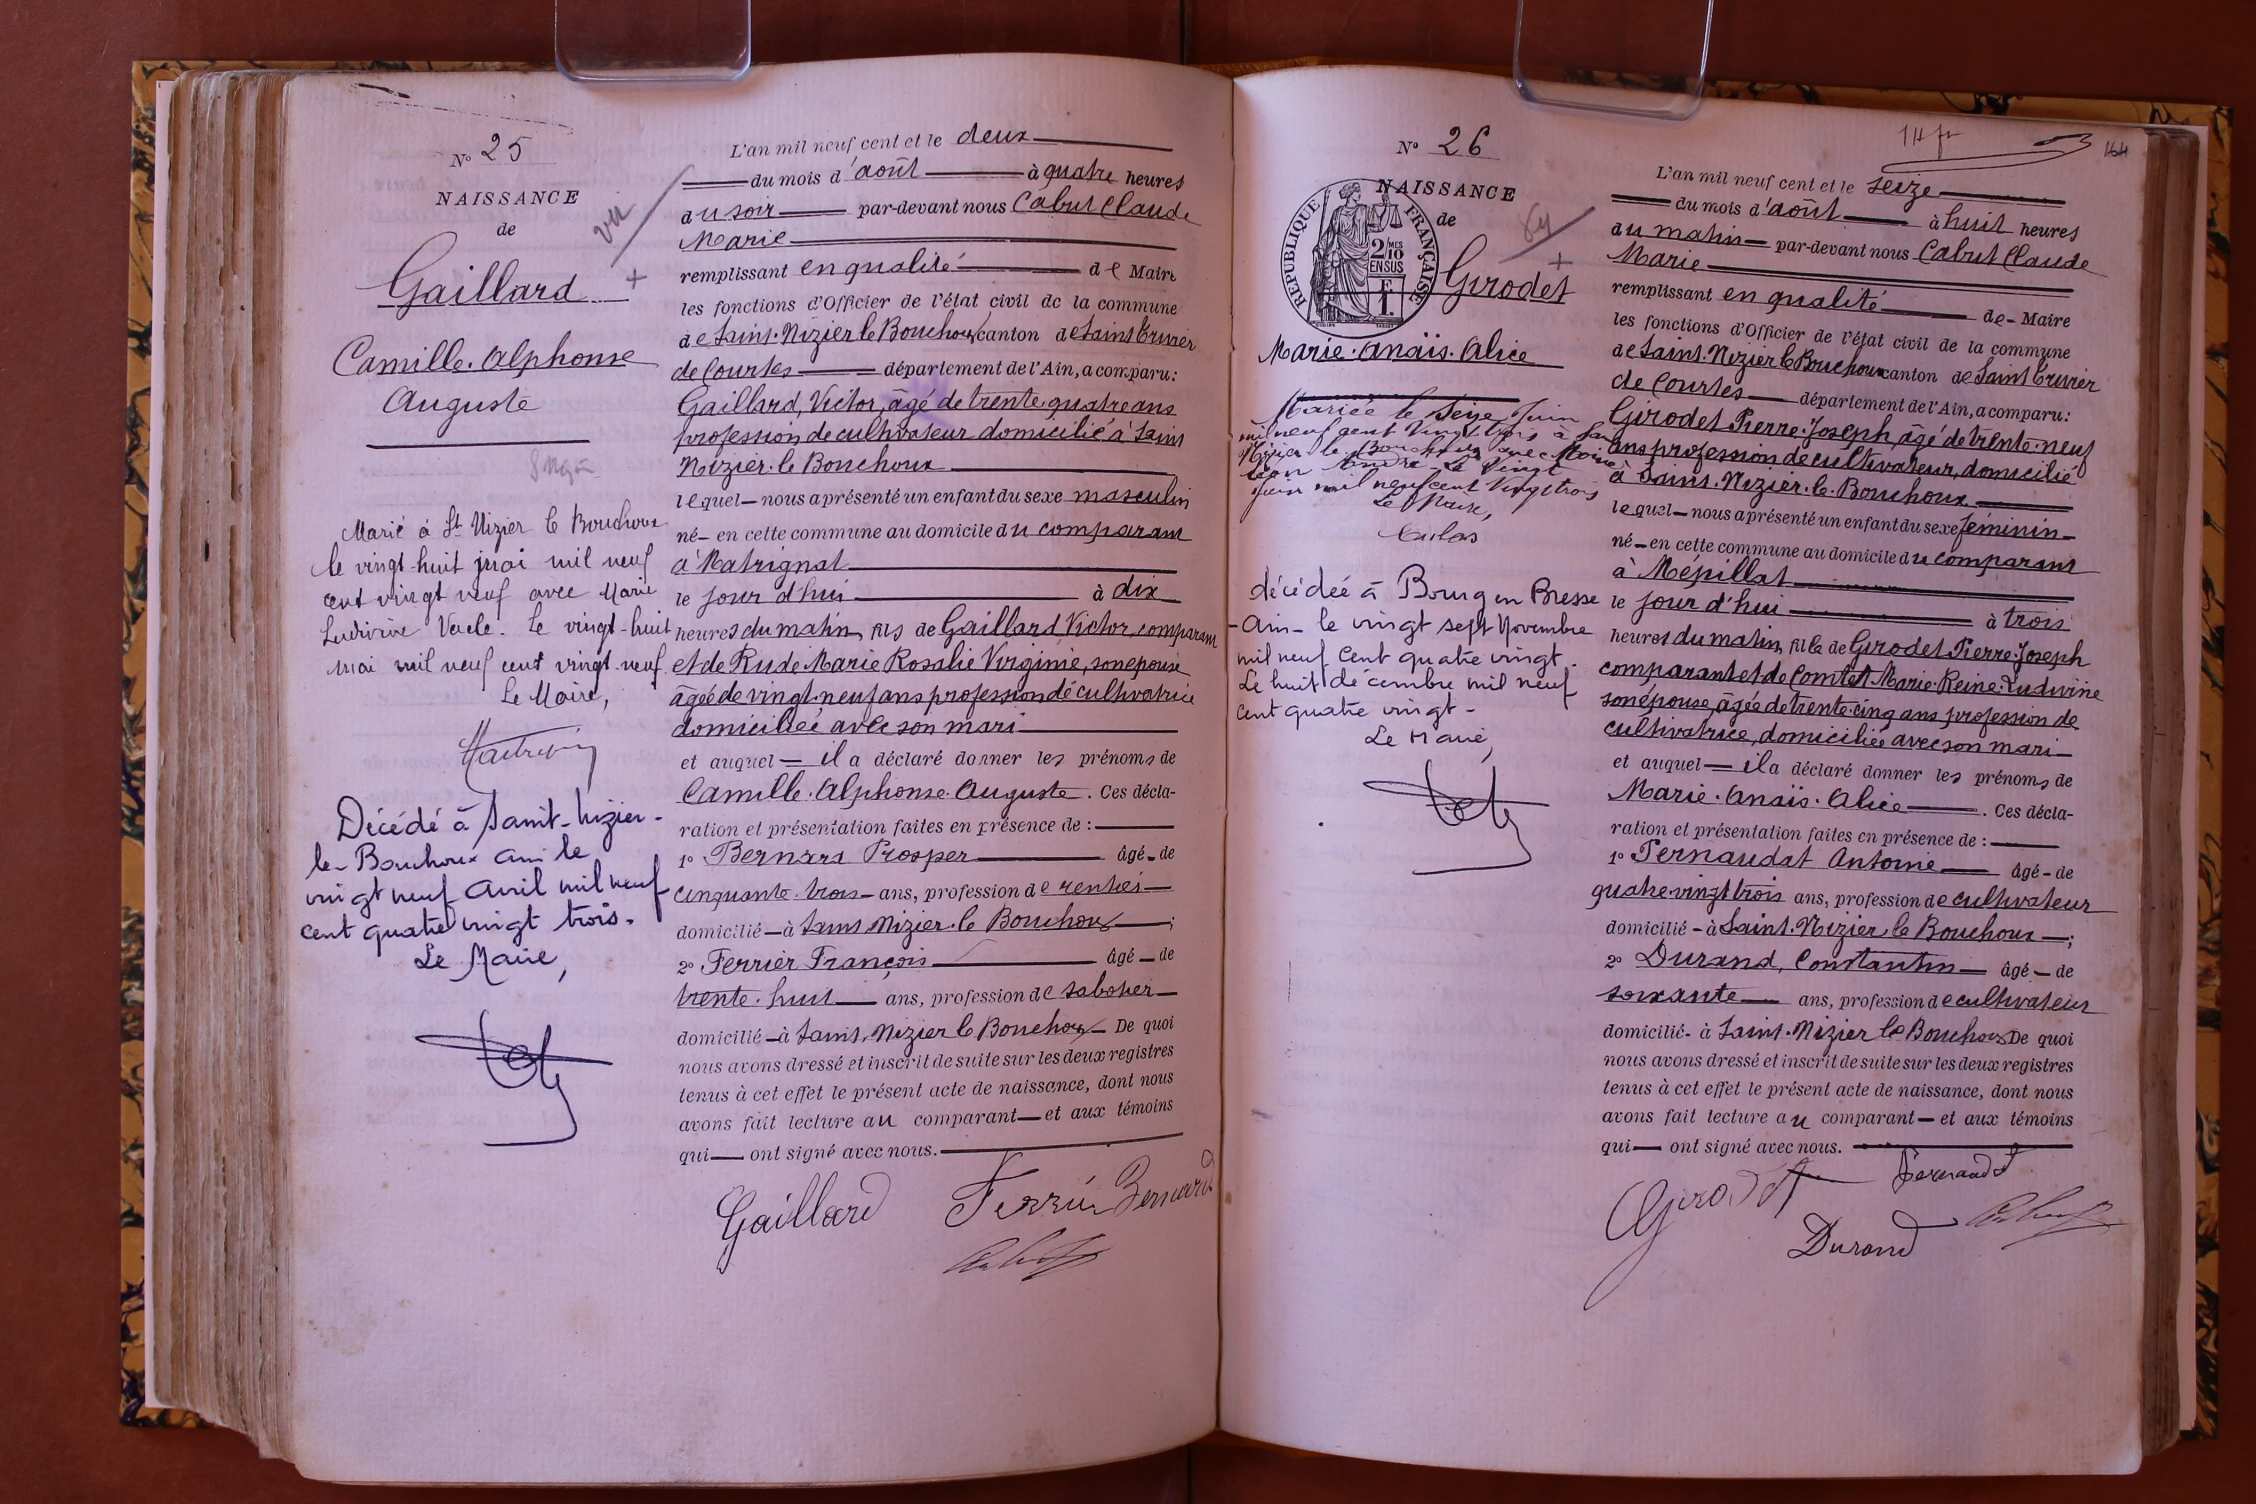 N° 25
NAISSANCE
de
Gaillard
Camille. Alphonse
Auguste
vu
Marié à St Nizier le Bouchoux
le vingt-huit mai mil neuf
cent vingt neuf avec Marie
Ludivine Vacle. Le vingt-huit
mai mil neuf cent vingt-neuf.
Le Maire,
Décédé à Saint-Nizier-
le-Bouchoux Ain le
vingt neuf Avril mil neuf
cent quatre vingt trois.
Le Maire,
L'an mil neuf cent et le deux
du mois d'août à quatre heures
du soir par-devant nous Cabut Claude
Marie
remplissant en qualité de Maire
les fonctions d'Officier de l'état civil de la commune
de Saint. Nizier le Bouchoux canton de Saint Trivier
de Courtes département de l'Ain, a comparu:
Gaillard, Victor, âgé de trente quatre ans
profession de cultivateur domicilié à Saint
Nizier. le Bouchoux
lequel — nous a présenté un enfant du sexe masculin
né — en cette commune au domicile du comparant
à Matrignat
le jour d'hui à dix
heures du matin, fils de Gaillard, Victor, comparant
et de Rude Marie Rosalie Virginie, son épouse
âgée de vingt-neuf ans profession de cultivatrice
domiciliée avec son mari
et auquel — il a déclaré donner les prénoms de
Camille. Alphonse. Auguste. Ces décla-
ration et présentation faites en présence de :
1° Bernard Prosper âgé — de
cinquante. trois — ans, profession de rentier
domicilié — à Saint Nizier. le Bouchoux ;
2° Ferrier François âgé — de
trente. huit ans, profession de sabotier
domicilié — à Saint. Nizier le Bouchoux — De quoi
nous avons dressé et inscrit de suite sur les deux registres
tenus à cet effet le présent acte de naissance, dont nous
avons fait lecture au comparant — et aux témoins
qui — ont signé avec nous.
Gaillard Ferrier Bernard
N° 26
NAISSANCE
de
RÉPUBLIQUE FRANÇAISE
2/10 MES
EN SUS
F.
1.
Girodet
Marie. Anaïs. Alice
Mariée le seize Juin
mil neuf cent vingt trois à Saint
Nizier le Bouchoux avec Moine
Léon André. Le vingt
juin mil neuf cent vingt trois
Le Maire,
décédée à Bourg en Bresse
- Ain - le vingt sept Novembre
mil neuf cent quatre vingt.
Le huit décembre mil neuf
cent quatre vingt -
Le Maire,
14 fr
164
L'an mil neuf cent et le seize
du mois d'août à huit heures
du matin — par-devant nous Cabut Claude
Marie
remplissant en qualité de - Maire
les fonctions d'Officier de l'état civil de la commune
de Saint. Nizier le Bouchoux canton de Saint Trivier
de Courtes département de l'Ain, a comparu:
Girodet Pierre. Joseph, âgé de trente. neuf
ans profession de cultivateur, domicilié
à Saint. Nizier. le. Bouchoux.
lequel — nous a présenté un enfant du sexe féminin
né — en cette commune au domicile du comparant
à Mépillat
le jour d'hui à trois
heures du matin, fille de Girodet Pierre. Joseph
comparant et de Comtet Marie. Reine. Ludivine
son épouse, âgée de trente. cinq ans profession de
cultivatrice, domiciliée avec son mari
et auquel — il a déclaré donner les prénoms de
Marie. Anaïs. Alice. Ces décla-
ration et présentation faites en présence de :
1° Pernaudat Antoine âgé - de
quatre-vingt trois ans, profession de cultivateur
domicilié - à Saint. Nizier le Bouchoux ;
2° Durand, Constantin âgé — de
soixante ans, profession de cultivateur
domicilié - à Saint. Nizier le Bouchoux De quoi
nous avons dressé et inscrit de suite sur les deux registres
tenus à cet effet le présent acte de naissance, dont nous
avons fait lecture au comparant — et aux témoins
qui — ont signé avec nous.
Girodet
Durand